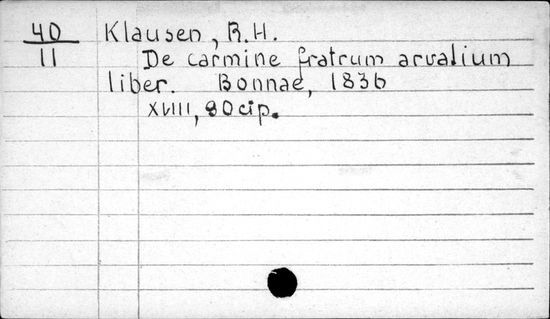 40 Klausen, R.H.
11 De carmine fratrum arvalium
liber. Bonnae, 1836
XVIII, 90 cip.